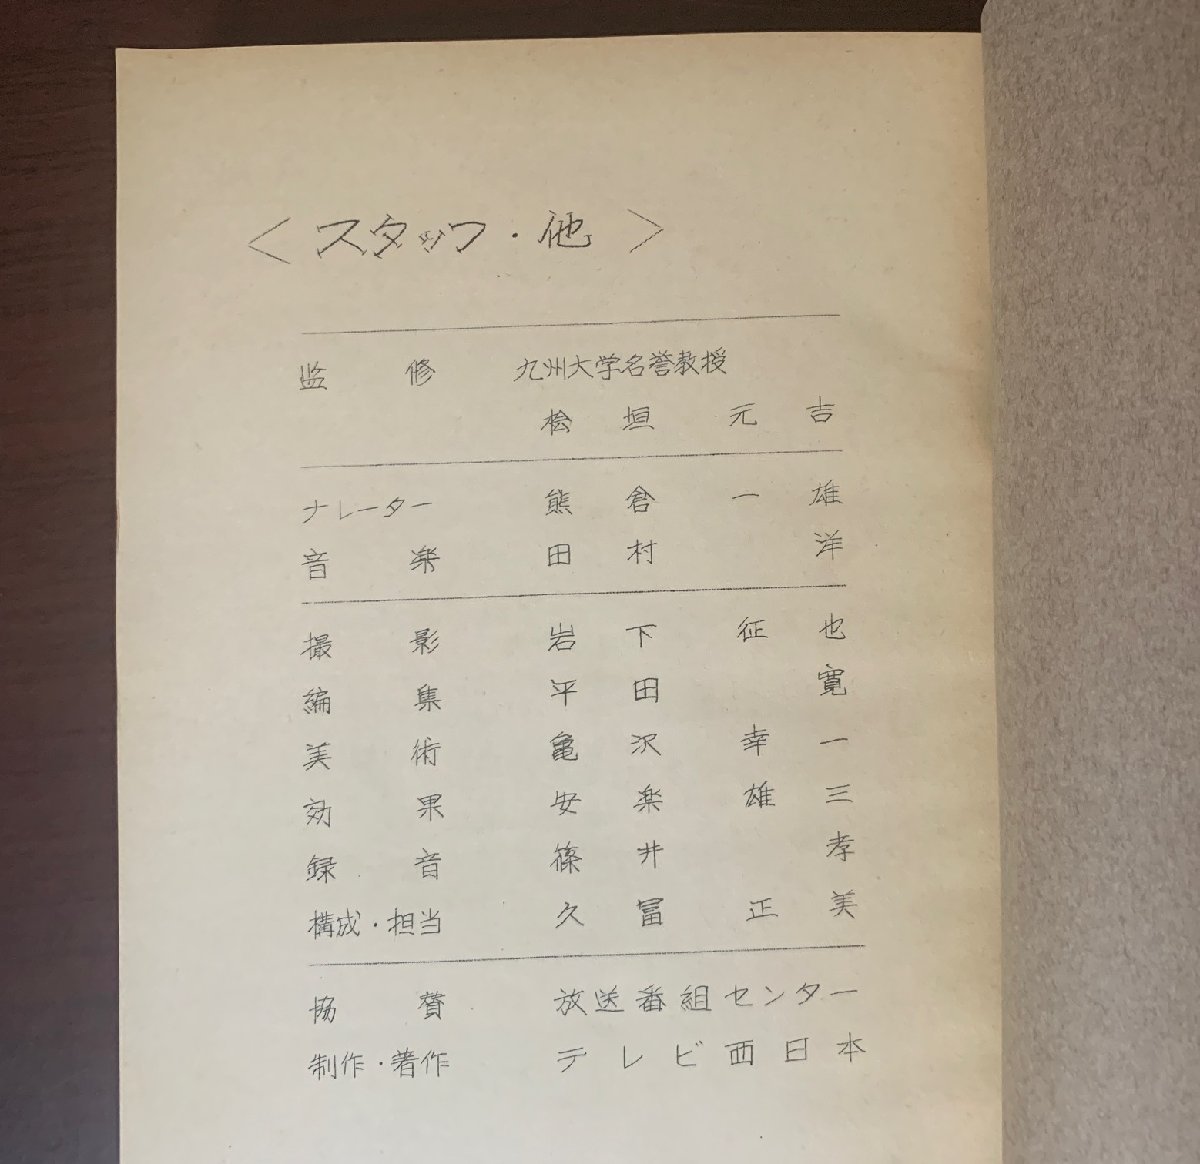 ＜スタッフ・他＞
監修 九州大学名誉教授
桧垣元吉
ナレーター 熊倉一雄
音楽 田村洋
撮影 岩下征也
編集 平田寛
美術 亀沢幸一
効果 安楽雄三
録音 篠井孝
構成・担当 久冨正美
協賛 放送番組センター
制作・著作 テレビ西日本